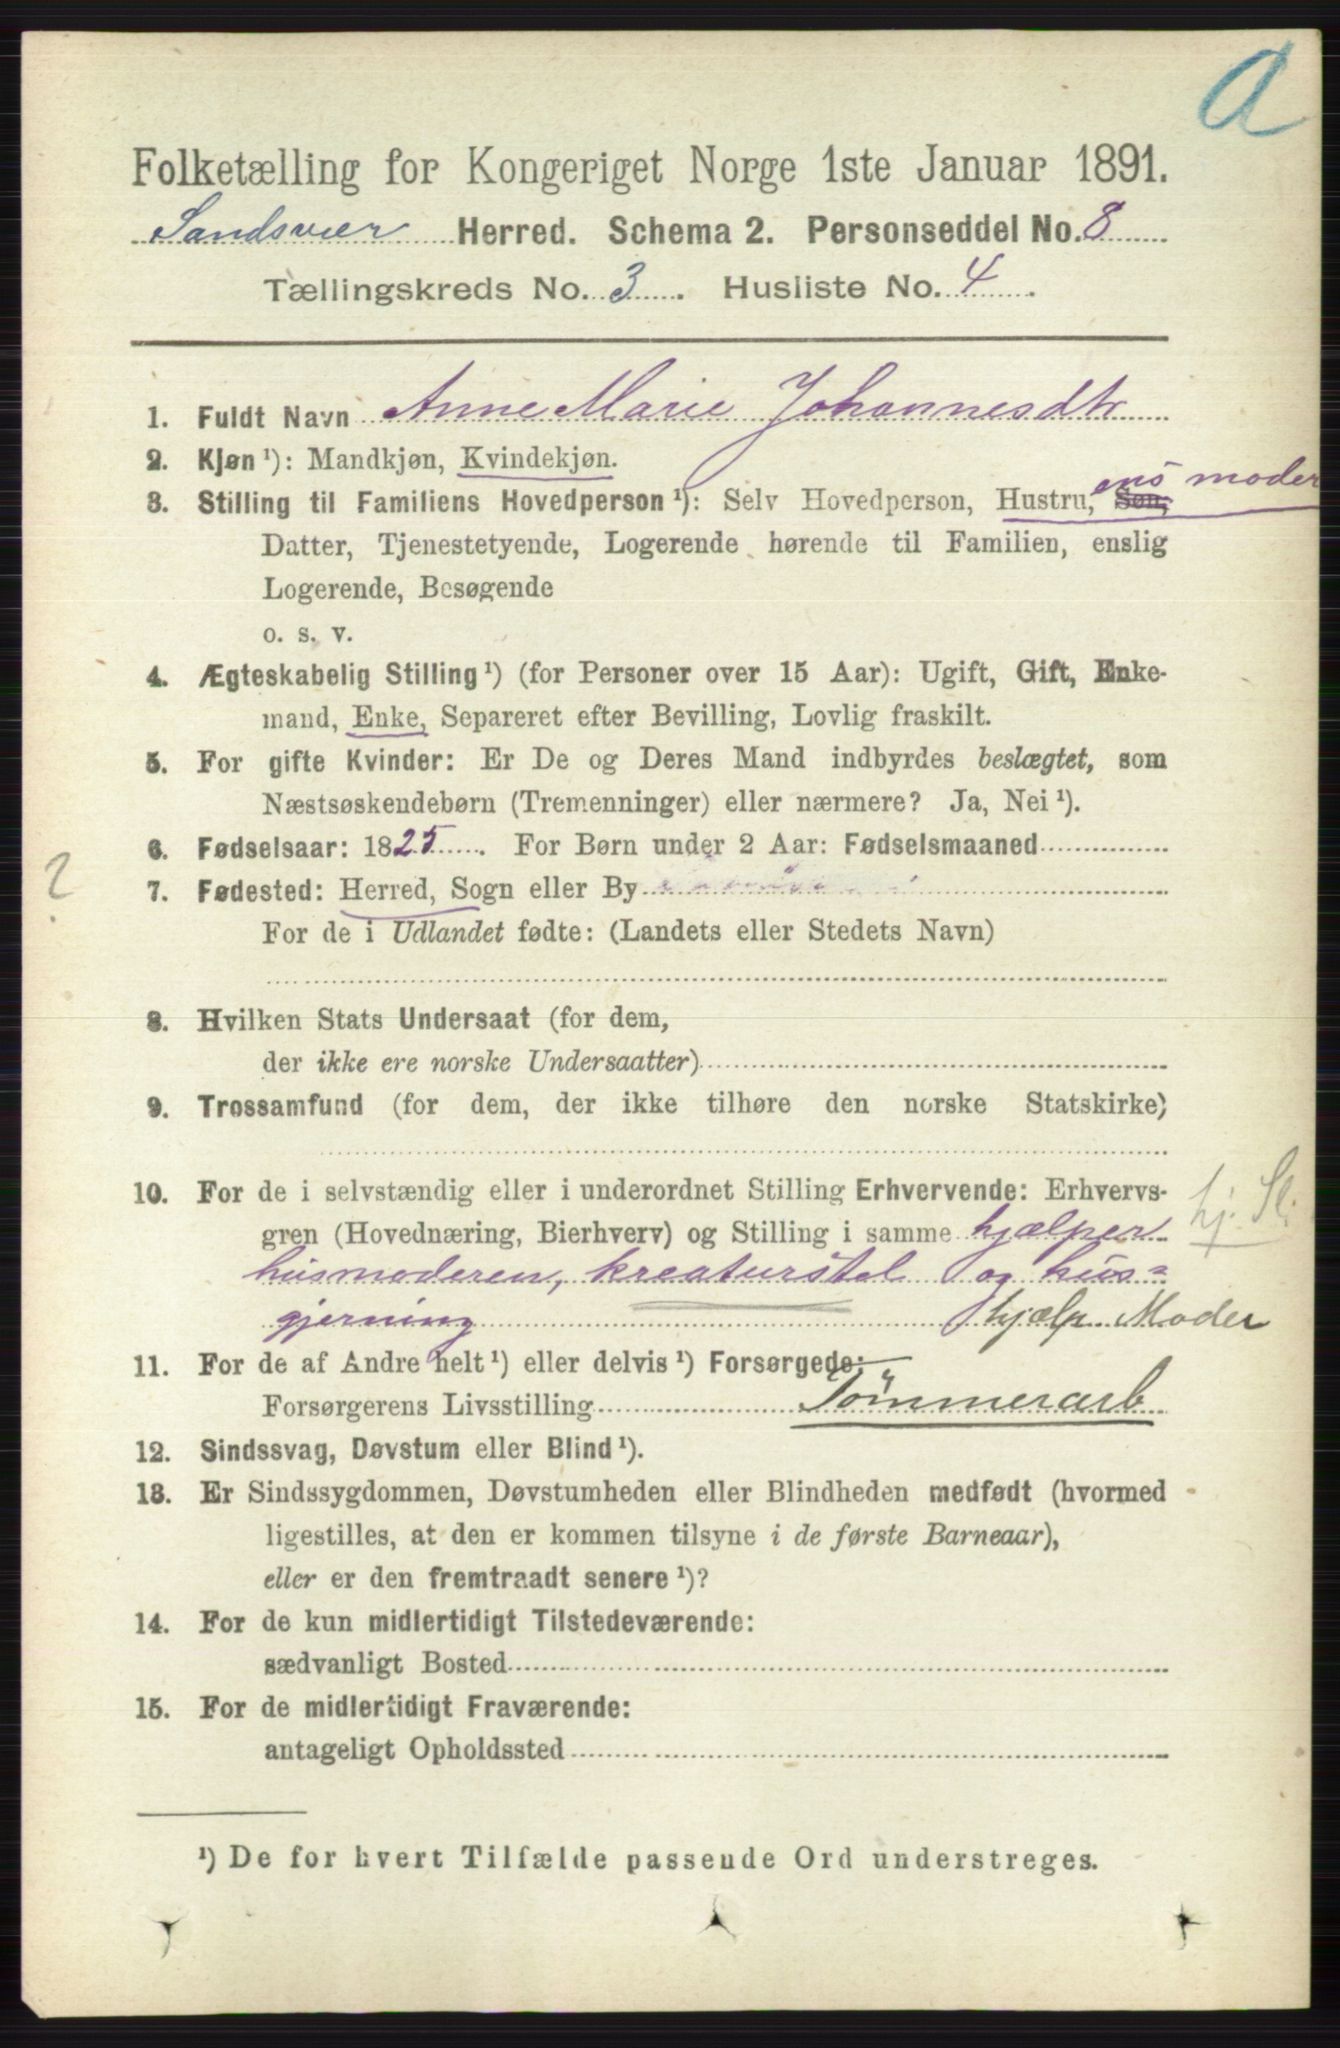 a
Folketælling for Kongeriget Norge 1ste Januar 1891.
Sandsvær Herred. Schema 2. Personseddel No. 8
Tællingskreds No. 3. Husliste No. 4.
1. Fuldt Navn Anne Marie Johannesdtr
2. Kjøn ¹): Mandkjøn, Kvindekjøn.
ens moder
3. Stilling til Familiens Hovedperson ¹): Selv Hovedperson, Hustru, Søn,
Datter, Tjenestetyende, Logerende hørende til Familien, enslig
Logerende, Besøgende
o. s. v.
4. Ægteskabelig Stilling ¹) (for Personer over 15 Aar): Ugift, Gift, Enke-
mand, Enke, Separeret efter Bevilling, Lovlig fraskilt.
5. For gifte Kvinder: Er De og Deres Mand indbyrdes beslægtet, som
Næstsøskendebørn (Tremenninger) eller nærmere? Ja, Nei ¹).
6. Fødselsaar: 1825. For Børn under 2 Aar: Fødselsmaaned
?
7. Fødested: Herred, Sogn eller By
For de i Udlandet fødte: (Landets eller Stedets Navn)
8. Hvilken Stats Undersaat (for dem,
der ikke ere norske Undersaatter)
9. Trossamfund (for dem, der ikke tilhøre den norske Statskirke)
10. For de i selvstændig eller i underordnet Stilling Erhvervende: Erhvervs-
hj. Sl.
gren (Hovednæring, Bierhverv) og Stilling i samme hjælper
husmoderen, kreaturstel og hus-
gjerning hjælp. Moder
11. For de af Andre helt ¹) eller delvis ¹) Forsørgede:
Forsørgerens Livsstilling Tömmerarb
12. Sindssvag, Døvstum eller Blind ¹).
13. Er Sindssygdommen, Døvstumheden eller Blindheden medfødt (hvormed
ligestilles, at den er kommen tilsyne i de første Barneaar),
eller er den fremtraadt senere ¹)?
14. For de kun midlertidigt Tilstedeværende:
sædvanligt Bosted
15. For de midlertidigt Fraværende:
antageligt Opholdssted
¹) De for hvert Tilfælde passende Ord understreges.